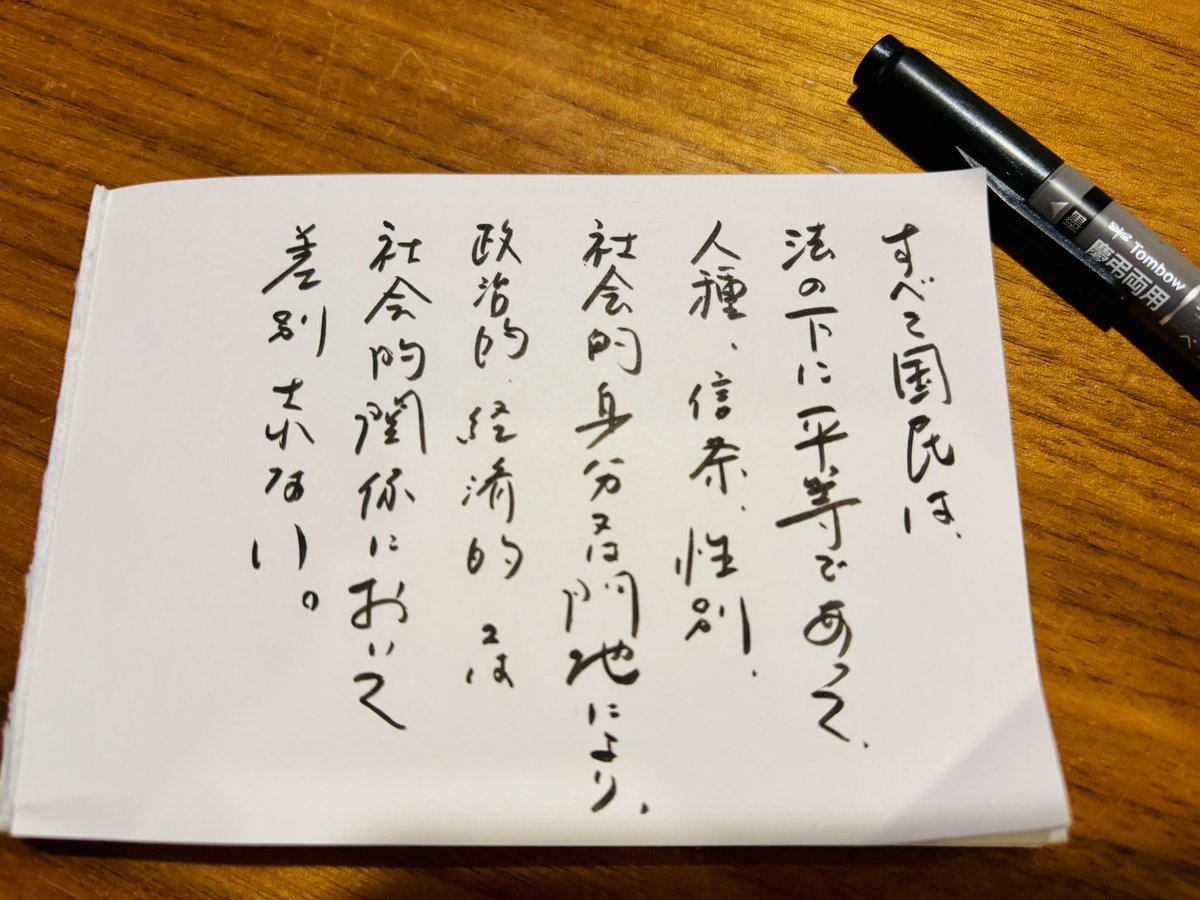 すべて国民は、
法の下に平等であって、
人種、信条、性別、
社会的身分又は門地により、
政治的、経済的又は
社会的関係において
差別されない。
Tombow
慶弔両用